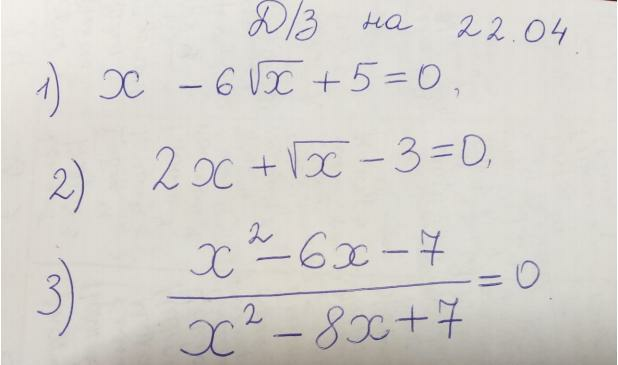 Д/З на 22.04
1) x - 6√x + 5 = 0,
2) 2x + √x - 3 = 0,
3) x² - 6x - 7
x² - 8x + 7 = 0